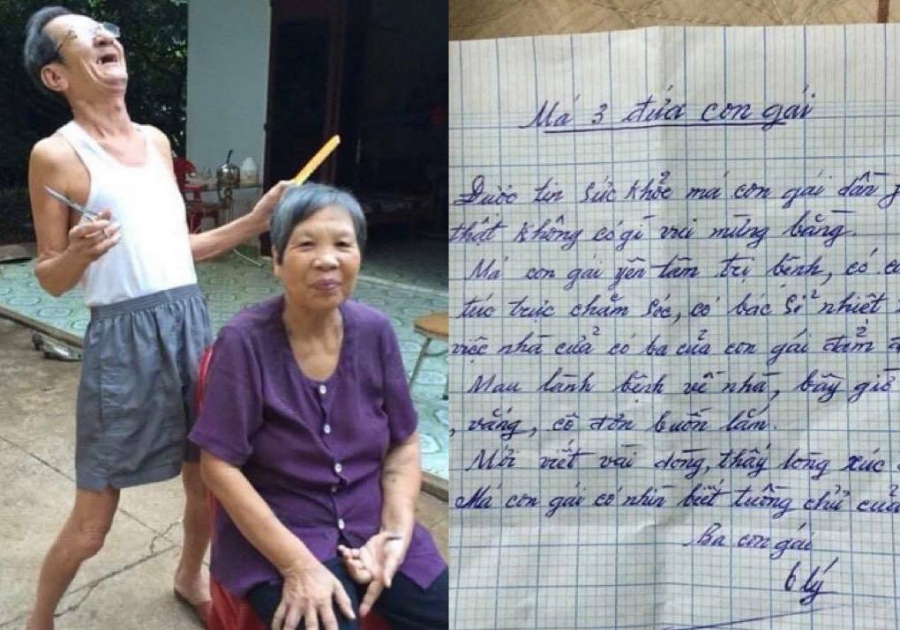 Má 3 đứa con gái
Được tin sức khỏe má con gái dần
thật không có gì vui mừng bằng.
Má con gái yên tâm trị bệnh, có
túc trực chăm sóc, có bác sĩ nhiệt
việc nhà cửa có ba của con gái đảm
Mau lành bệnh về nhà, bây giờ
vắng, cô đơn buồn lắm.
Mới viết vài dòng, thấy lòng xúc
Má con gái có nhìn biết tuồng chữ của
Ba con gái
6 lý